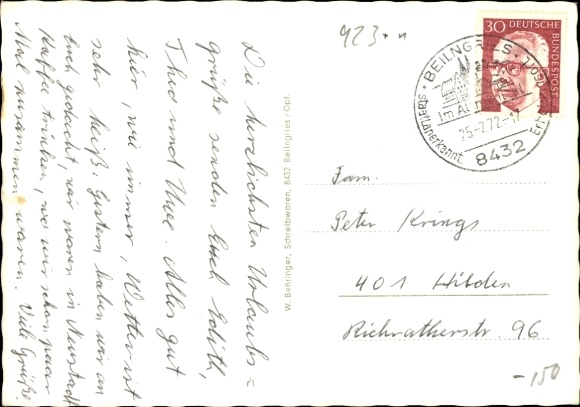 Die herzlichsten Urlaubs=
grüße senden Euch Edith,
Theo und Uwe. Alles gut
hier, wie immer, Wetter ist
sehr heiß. Gestern haben wir an
Euch gedacht, wir waren in Neustadt
Kaffee trinken, wo wir schon paar
Mal zusammen waren. Viele Grüße.
W. Behringer, Schreibwaren, 8432 Beilngries/Opf.
923.-n
30 DEUTSCHE BUNDESPOST
BEILNGRIES
IM ALTM
25-7.72-17
8432
Staatl. anerkannt.
Fam.
Peter Krings
401 Hilden
Richratherstr. 96
-150